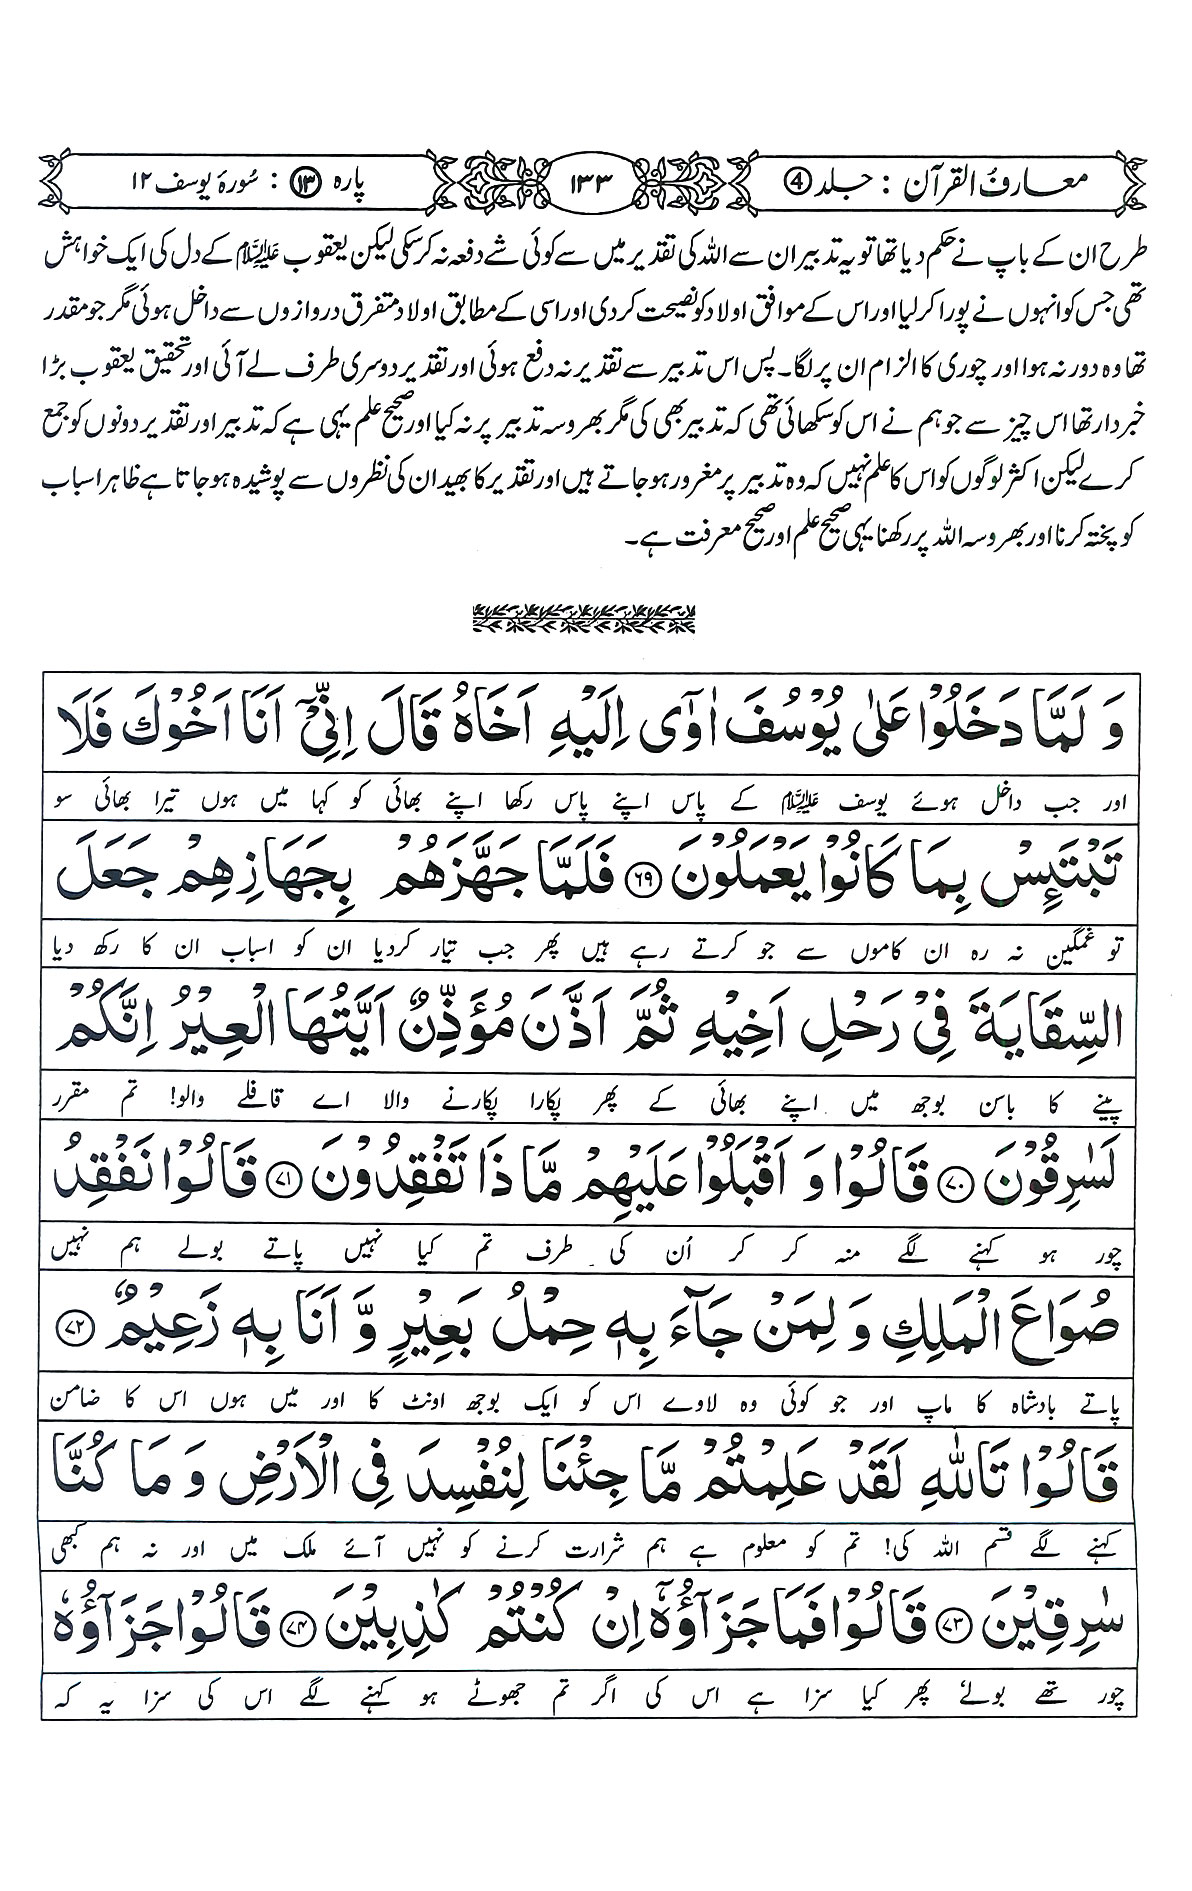 معارفُ القرآن : جلد ④
۱۳۳
پارہ ⑬ : سُورۂ یوسف ۱۲
طرح ان کے باپ نے حکم دیا تھا تو یہ تدبیر ان سے اللہ کی تقدیر میں سے کوئی شے دفعہ نہ کرسکی لیکن یعقوب علیہ السلام کے دل کی ایک خواہش
تھی جس کو انہوں نے پورا کرلیا اور اس کے موافق اولاد کو نصیحت کردی اور اسی کے مطابق اولاد متفرق دروازوں سے داخل ہوئی مگر جو مقدر
تھا وہ دور نہ ہوا اور چوری کا الزام ان پر لگا۔ پس اس تدبیر سے تقدیر نہ دفع ہوئی اور تقدیر دوسری طرف لے آئی اور تحقیق یعقوب بڑا
خبردار تھا اس چیز سے جو ہم نے اس کو سکھائی تھی کہ تدبیر بھی کی مگر بھروسہ تدبیر پر نہ کیا اور صحیح علم یہی ہے کہ تدبیر اور تقدیر دونوں کو جمع
کرے لیکن اکثر لوگوں کو اس کا علم نہیں کہ وہ تدبیر پر مغرور ہوجاتے ہیں اور تقدیر کا بھید ان کی نظروں سے پوشیدہ ہوجاتا ہے ظاہر اسباب
کو پختہ کرنا اور بھروسہ اللہ پر رکھنا یہی صحیح علم اور صحیح معرفت ہے۔
وَ لَمَّا دَخَلُوْا عَلٰی یُوْسُفَ اٰوٰۤی اِلَیْهِ اَخَاهُ قَالَ اِنِّیْۤ اَنَا اَخُوْكَ فَلَا
اور جب داخل ہوئے یوسف علیہ السلام کے پاس اپنے پاس رکھا اپنے بھائی کو کہا میں ہوں تیرا بھائی سو
تَبْتَىِٕسْ بِمَا كَانُوْا یَعْمَلُوْنَ ﴿۶۹﴾ فَلَمَّا جَهَّزَهُمْ بِجَهَازِهِمْ جَعَلَ
تو غمگین نہ رہ ان کاموں سے جو کرتے رہے ہیں پھر جب تیار کردیا ان کو اسباب ان کا رکھ دیا
السِّقَایَةَ فِیْ رَحْلِ اَخِیْهِ ثُمَّ اَذَّنَ مُؤَذِّنٌ اَیَّتُهَا الْعِیْرُ اِنَّكُمْ
پینے کا باسن بوجھ میں اپنے بھائی کے پھر پکارا پکارنے والا اے قافلے والو! تم مقرر
لَسٰرِقُوْنَ ﴿۷۰﴾ قَالُوْا وَ اَقْبَلُوْا عَلَیْهِمْ مَّا ذَا تَفْقِدُوْنَ ﴿۷۱﴾ قَالُوْا نَفْقِدُ
چور ہو کہنے لگے منہ کر کر اُن کی طرف تم کیا نہیں پاتے بولے ہم نہیں
صُوَاعَ الْمَلِكِ وَ لِمَنْ جَآءَ بِهٖ حِمْلُ بَعِیْرٍ وَّ اَنَا بِهٖ زَعِیْمٌ ﴿۷۲﴾
پاتے بادشاہ کا ماپ اور جو کوئی وہ لاوے اس کو ایک بوجھ اونٹ کا اور میں ہوں اس کا ضامن
قَالُوْا تَاللّٰهِ لَقَدْ عَلِمْتُمْ مَّا جِئْنَا لِنُفْسِدَ فِی الْاَرْضِ وَ مَا كُنَّا
کہنے لگے قسم اللہ کی! تم کو معلوم ہے ہم شرارت کرنے کو نہیں آئے ملک میں اور نہ ہم کبھی
سٰرِقِیْنَ ﴿۷۳﴾ قَالُوْا فَمَا جَزَآؤُهٗۤ اِنْ كُنْتُمْ كٰذِبِیْنَ ﴿۷۴﴾ قَالُوْا جَزَآؤُهٗ
چور تھے بولے پھر کیا سزا ہے اس کی اگر تم جھوٹے ہو کہنے لگے اس کی سزا یہ کہ